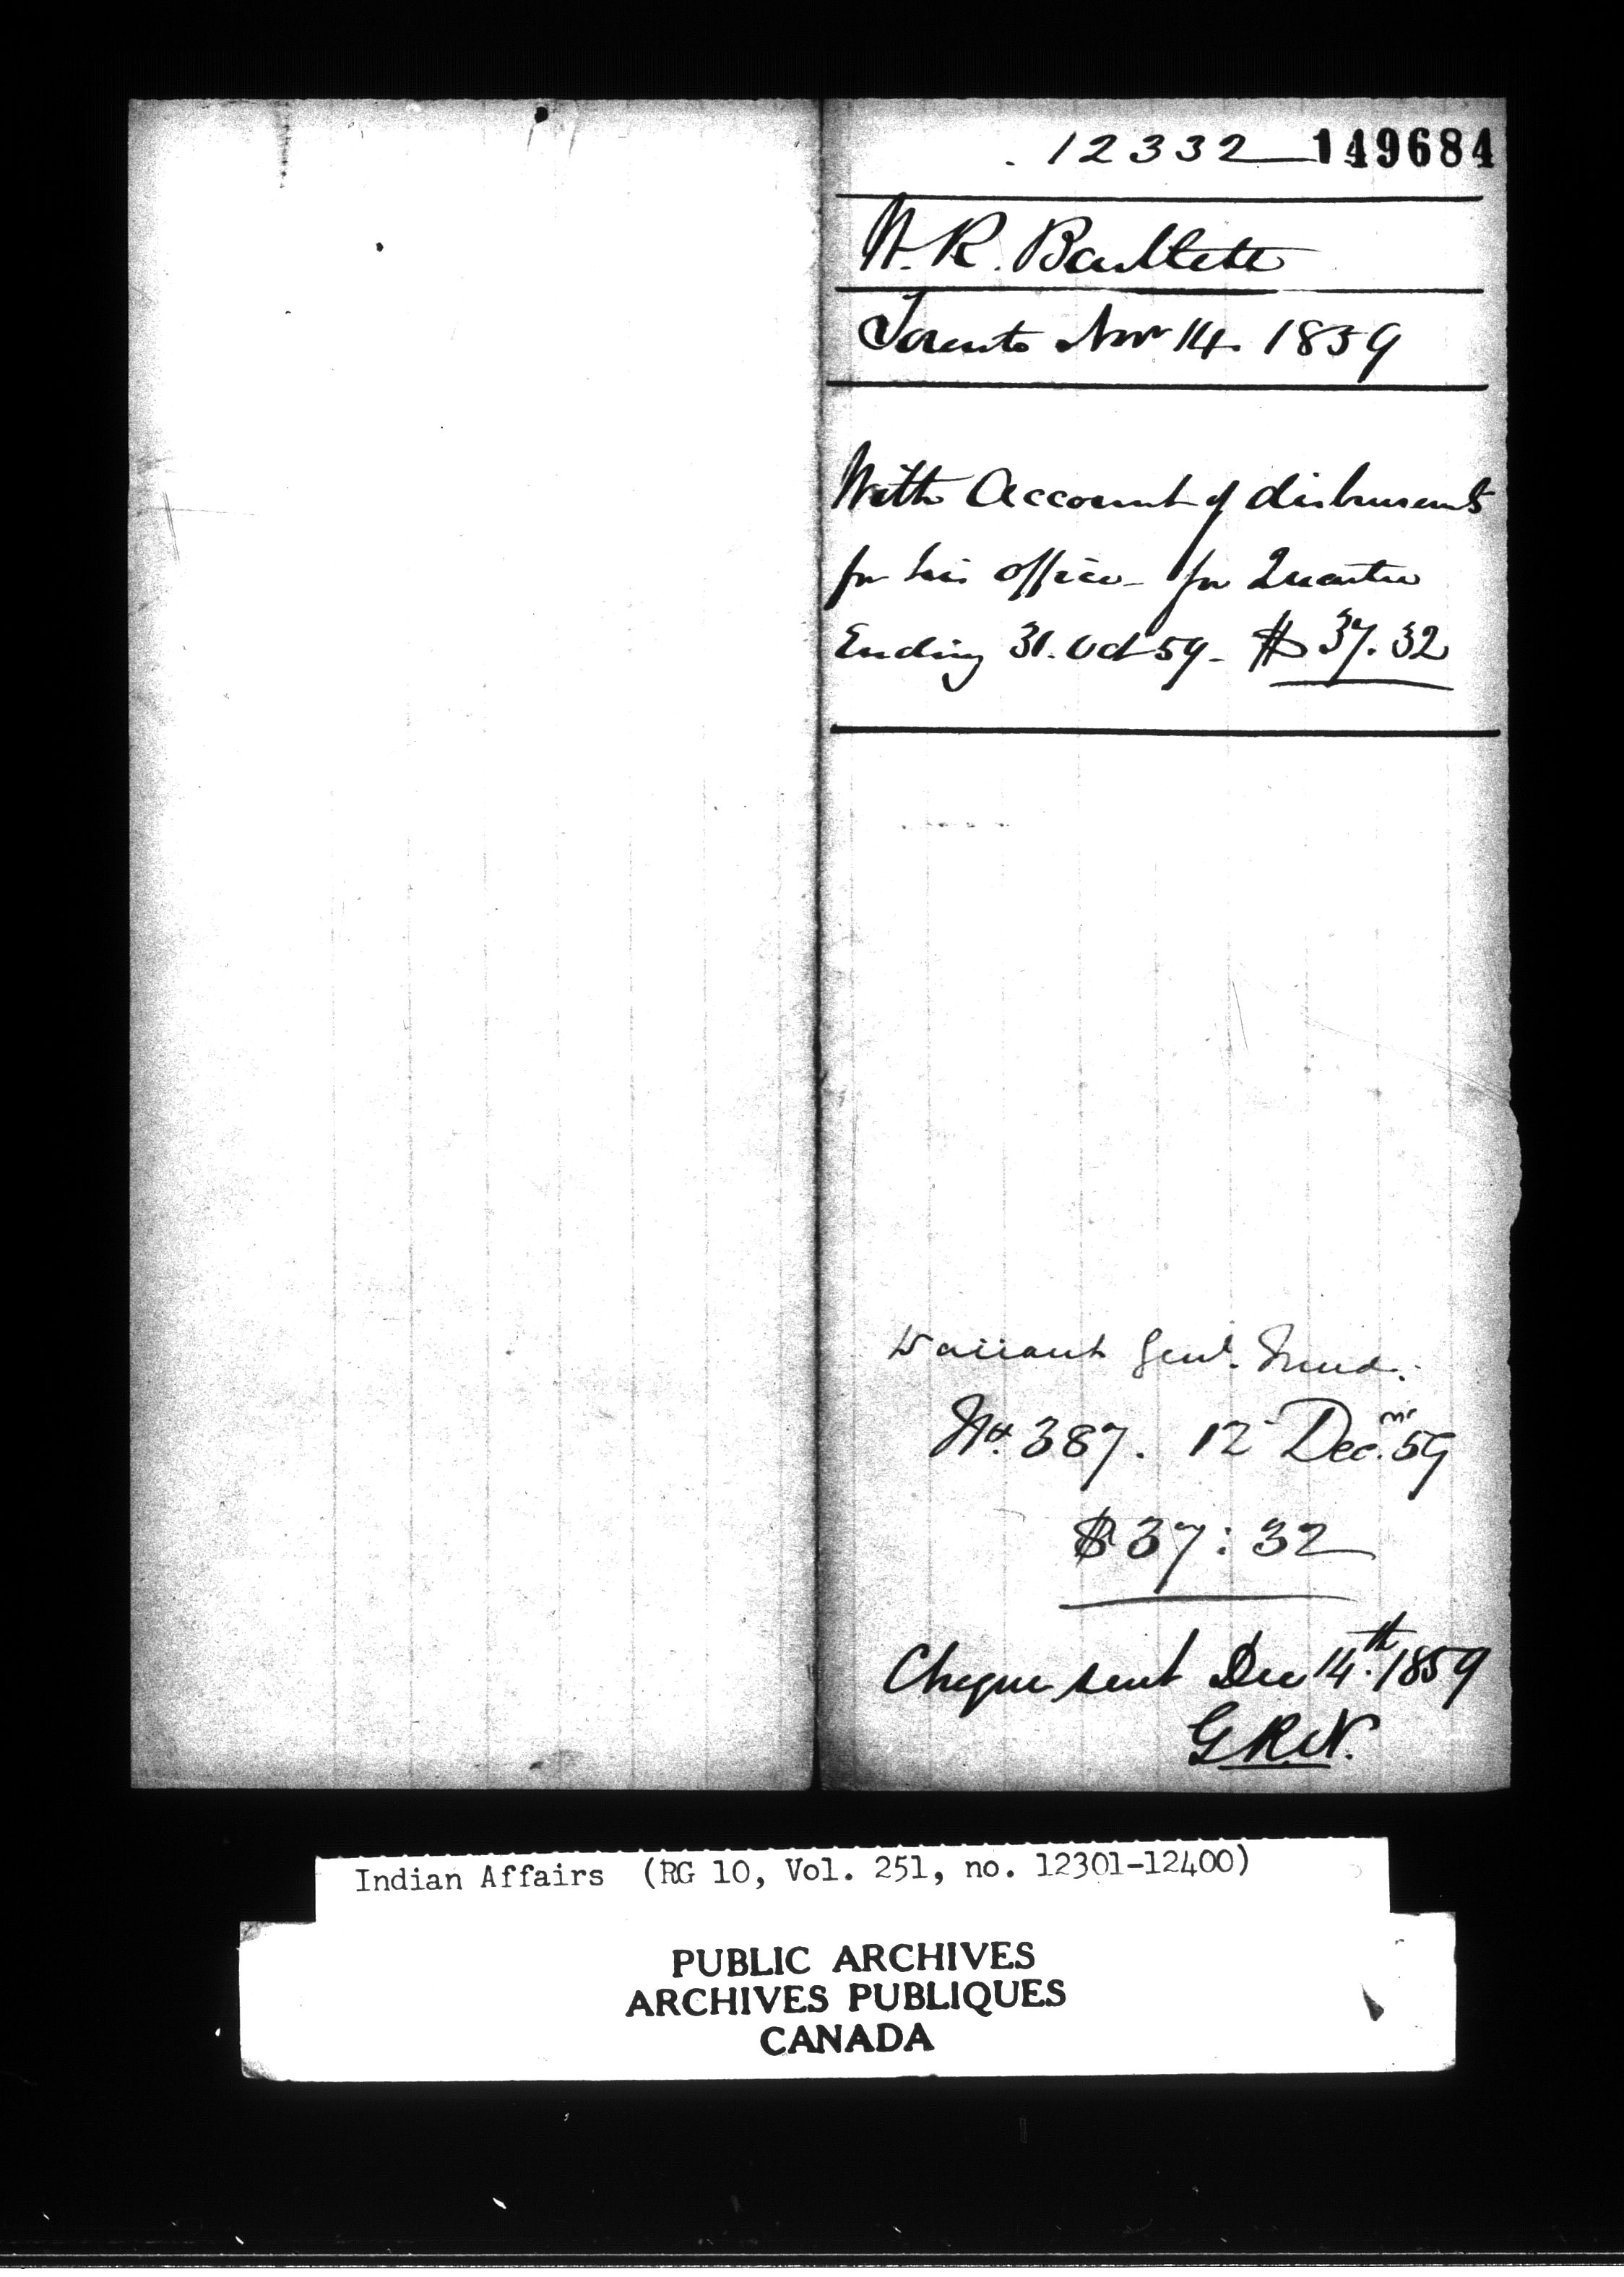 12332 149684
W. R. Bartlett
Toronto Nov 14. 1859
With Account of disbursemts
for his office - for Quarter
Ending 31. Oct 59 - $37.32
Warrant Genl. Fund.
No. 387. 12 Dec.mr 59
$37:32
Cheque sent Dec 14.th 1859
G.R.N.
Indian Affairs (RG 10, Vol. 251, no. 12301-12400)
PUBLIC ARCHIVES
ARCHIVES PUBLIQUES
CANADA